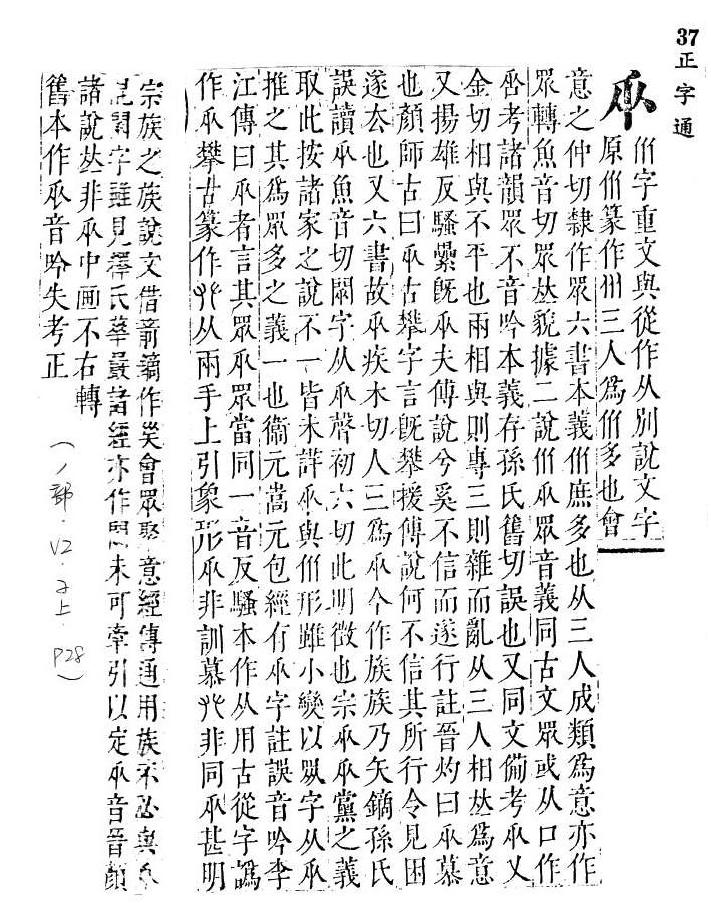 37 正字通
乑
㐺字重文與從作从別說文字
原㐺篆作𠈌三人爲㐺多也會
意之仲切隸作眾六書本義㐺庶多也从三人成類爲意亦作
眾轉魚音切眾𠀤貌據二說㐺乑眾音義同古文眾或从口作
考諸韻眾不音吟本義存孫氏舊切誤也又同文備考乑又
金切相與不平也兩相與則專三則雜而亂从三人相𠀤爲意
又揚雄反騷纍旣乑夫傅說兮奚不信而遂行註晉灼曰乑慕
也顏師古曰乑古攀字言旣攀援傅說何不信其所行令見困
遂去也又六書故乑疾木切人三爲乑今作族族乃矢鏑孫氏
誤讀乑魚音切閦字从乑聲初六切此明徵也宗乑乑黨之義
取此按諸家之說不一皆未詳乑與㐺形雖小變以眾字从乑
推之其爲眾多之義一也衞元嵩元包經有乑字註誤音吟李
江傳曰乑者言其眾乑眾當同一音反騷本作从用古從字譌
作乑攀古篆作𠬜从兩手上引象形乑非訓慕𠬜非同乑甚明
宗族之族說文借箭鏑作矣會眾聚意經傳通用族不必與乑
混閦字雖見釋氏華嚴諸經亦作閦未可牽引以定乑音晉顏
諸說𠀤非乑中画不右轉
舊本作乑音吟失考正
（丿部．V2．子上 P28）